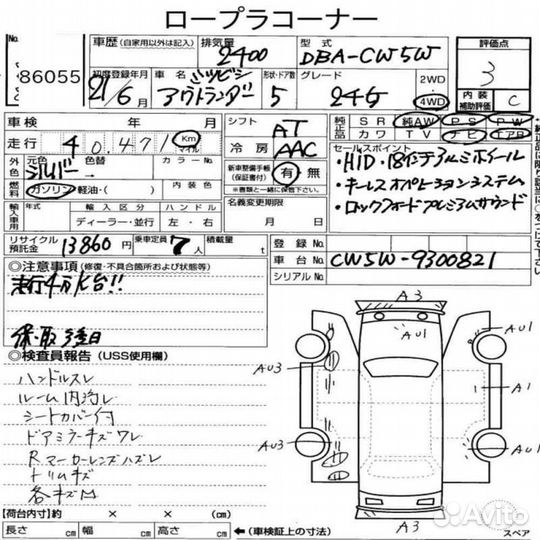 ロープラコーナー
No.
86055
車歴 (自家用以外は記入)
排気量
2400
型式
DBA-CW5W
評価点
3
初度登録年月
21/6
年
月
車名
ミツビシ
アウトランダー
形状・ドア数
5
グレード
24G
2WD
4WD
内装
補助評価
C
車検 年 月
シフト
AT
純正品
SR 純AW PS PW
カワ TV ナビ エアB
走行 40.471 Km
マイル
冷房 AAC
セールスポイント
・HID・18インチアルミホイール
・キーレスオペレーションシステム
・ロックフォードプレミアムサウンド
外色
元色
シルバー
色替
カラーNo.
新車整備手帳
(保証書付)
有・無
※書類と一緒に保管して下さい。
燃料
ガソリン・軽油・( )
内装色
輸入車用
年式
輸入区分
ディーラー・並行
ハンドル
左・右
名義変更期限
月 日
リサイクル
預託金
13860 円
乗車定員
7 人
積載量
t
登録No.
車台No. CW5W-9300821
シリアルNo.
◎注意事項 (修復・不具合箇所および状態等)
走行4万K台!!
保・取 後日
◎検査員報告 (USS使用欄)
ハンドルスレ
ルーム内汚レ
シートカバー付
ドアミラーキズワレ
Rマーカーレンズハズレ
トリムキズ
各キズ凹
A3
AU1
AU1
AU3
A1
AU3
AU1
A3
【荷台内寸】
長さ (cm)
幅 (cm)
高さ (cm)
(車検証上の寸法)
スペア
Avito